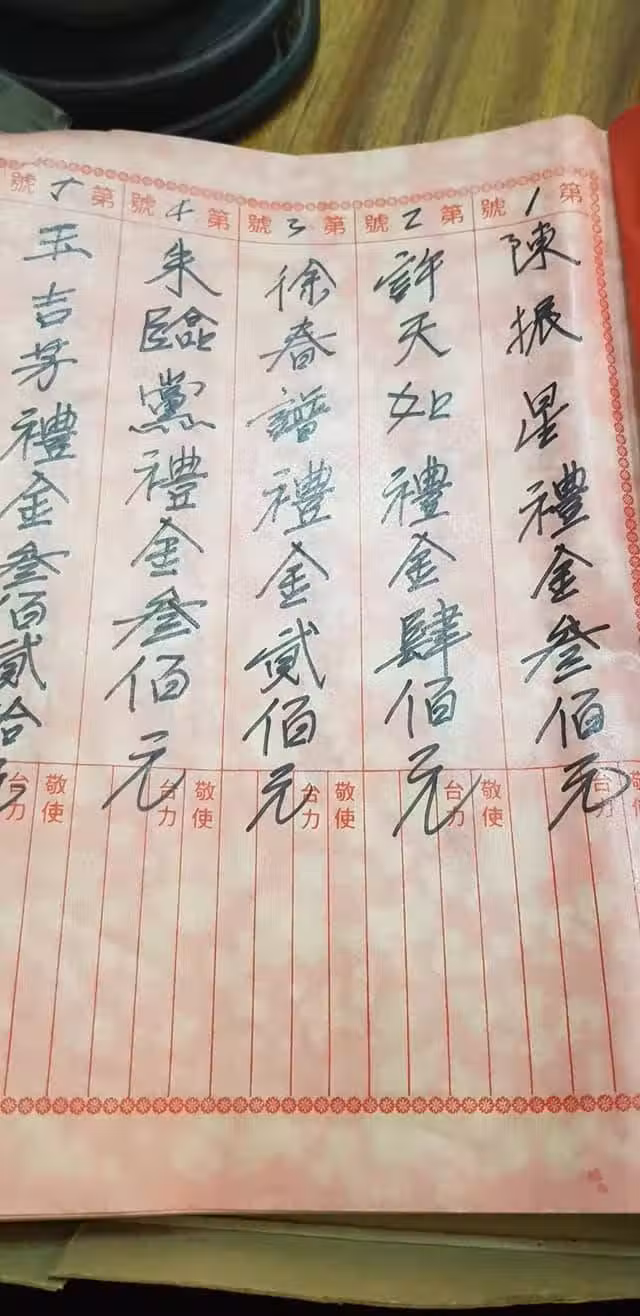 第1號
陳振星禮金叁佰元
敬使
台力
第2號
許天如禮金肆佰元
敬使
台力
第3號
徐春譜禮金貳佰元
敬使
台力
第4號
朱臨黨禮金叁佰元
敬使
台力
第5號
玉吉芽禮金叁佰貳拾元
敬使
台